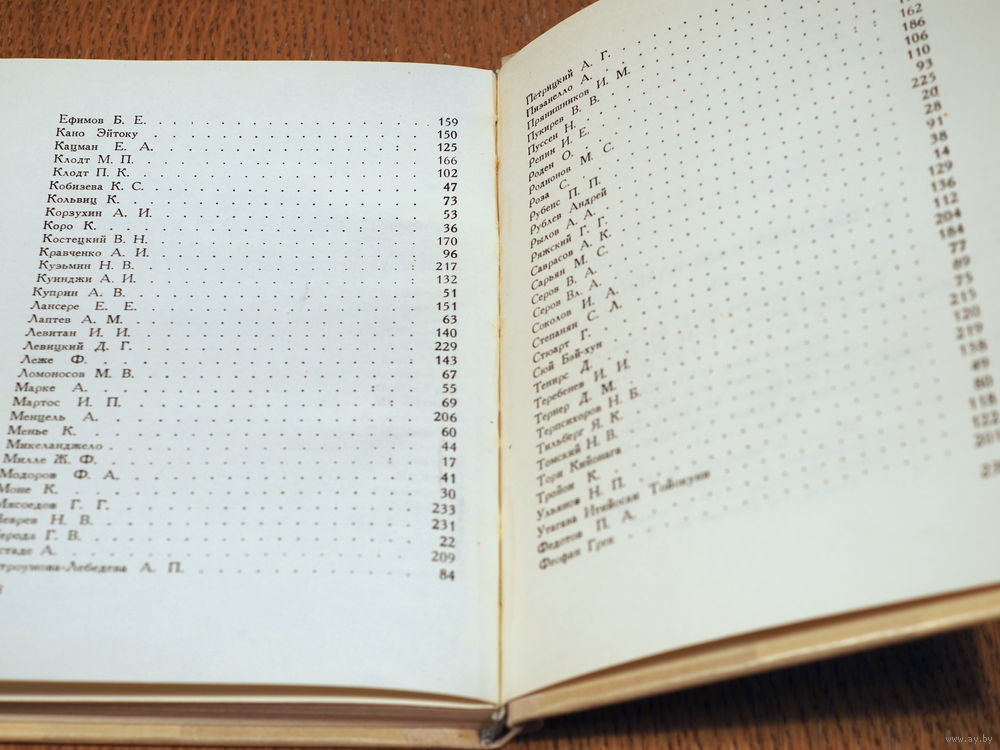 Ефимов Б. Е. 159
Кано Эйтоку 150
Кацман Е. А. 125
Клодт М. П. 166
Клодт П. К. 102
Кобизева К. С. 47
Кольвиц К. 73
Корзухин А. И. 53
Коро К. 36
Костецкий В. Н. 170
Кравченко А. И. 96
Кузьмин Н. В. 217
Куинджи А. И. 132
Куприн А. В. 51
Лансере Е. Е. 151
Лаптев А. М. 63
Левитан И. И. 140
Левицкий Д. Г. 229
Леже Ф. 143
Ломоносов М. В. 67
Марке А. 55
Мартос И. П. 69
Менцель А. 206
Менье К. 60
Микеланджело 44
Милле Ж. Ф. 17
Модоров Ф. А. 41
Моне К. 30
Мясоедов Г. Г. 233
Неврев Н. В. 231
ерода Г. В. 22
стаде А. 209
троумова-Лебедева А. П. 84
Петрицкий А. Г.
Пизанелло А.
Прянишников И. М.
Пукирев В. В.
Пуссен Н.
Репин И. Е.
Роден О.
Родионов М. С.
Роза С.
Рубенс П. П.
Рублев Андрей
Рылов А. А.
Ряжский Г. Г.
Саврасов А. К.
Сарьян М. С.
Серов В. А.
Серов Вл. А.
Соколов И. А.
Степанян С. Л.
Стюарт Г.
Сюй Бэй-хун
Тенирс Д.
Теребенев И. И.
Тернер Д. М.
Терпсихоров Н. Б.
Тильберг Я. К.
Томский Н. В.
Тори Кийонага
Тройон К.
Ульянов Н. П.
Утагава Итийоски Тойокуни
Федотов П. А.
Феофан Грек
162
186
106
110
93
225
20
28
91
38
14
129
136
112
204
184
77
89
75
215
120
219
138
49
80
118
122
www.ay.by